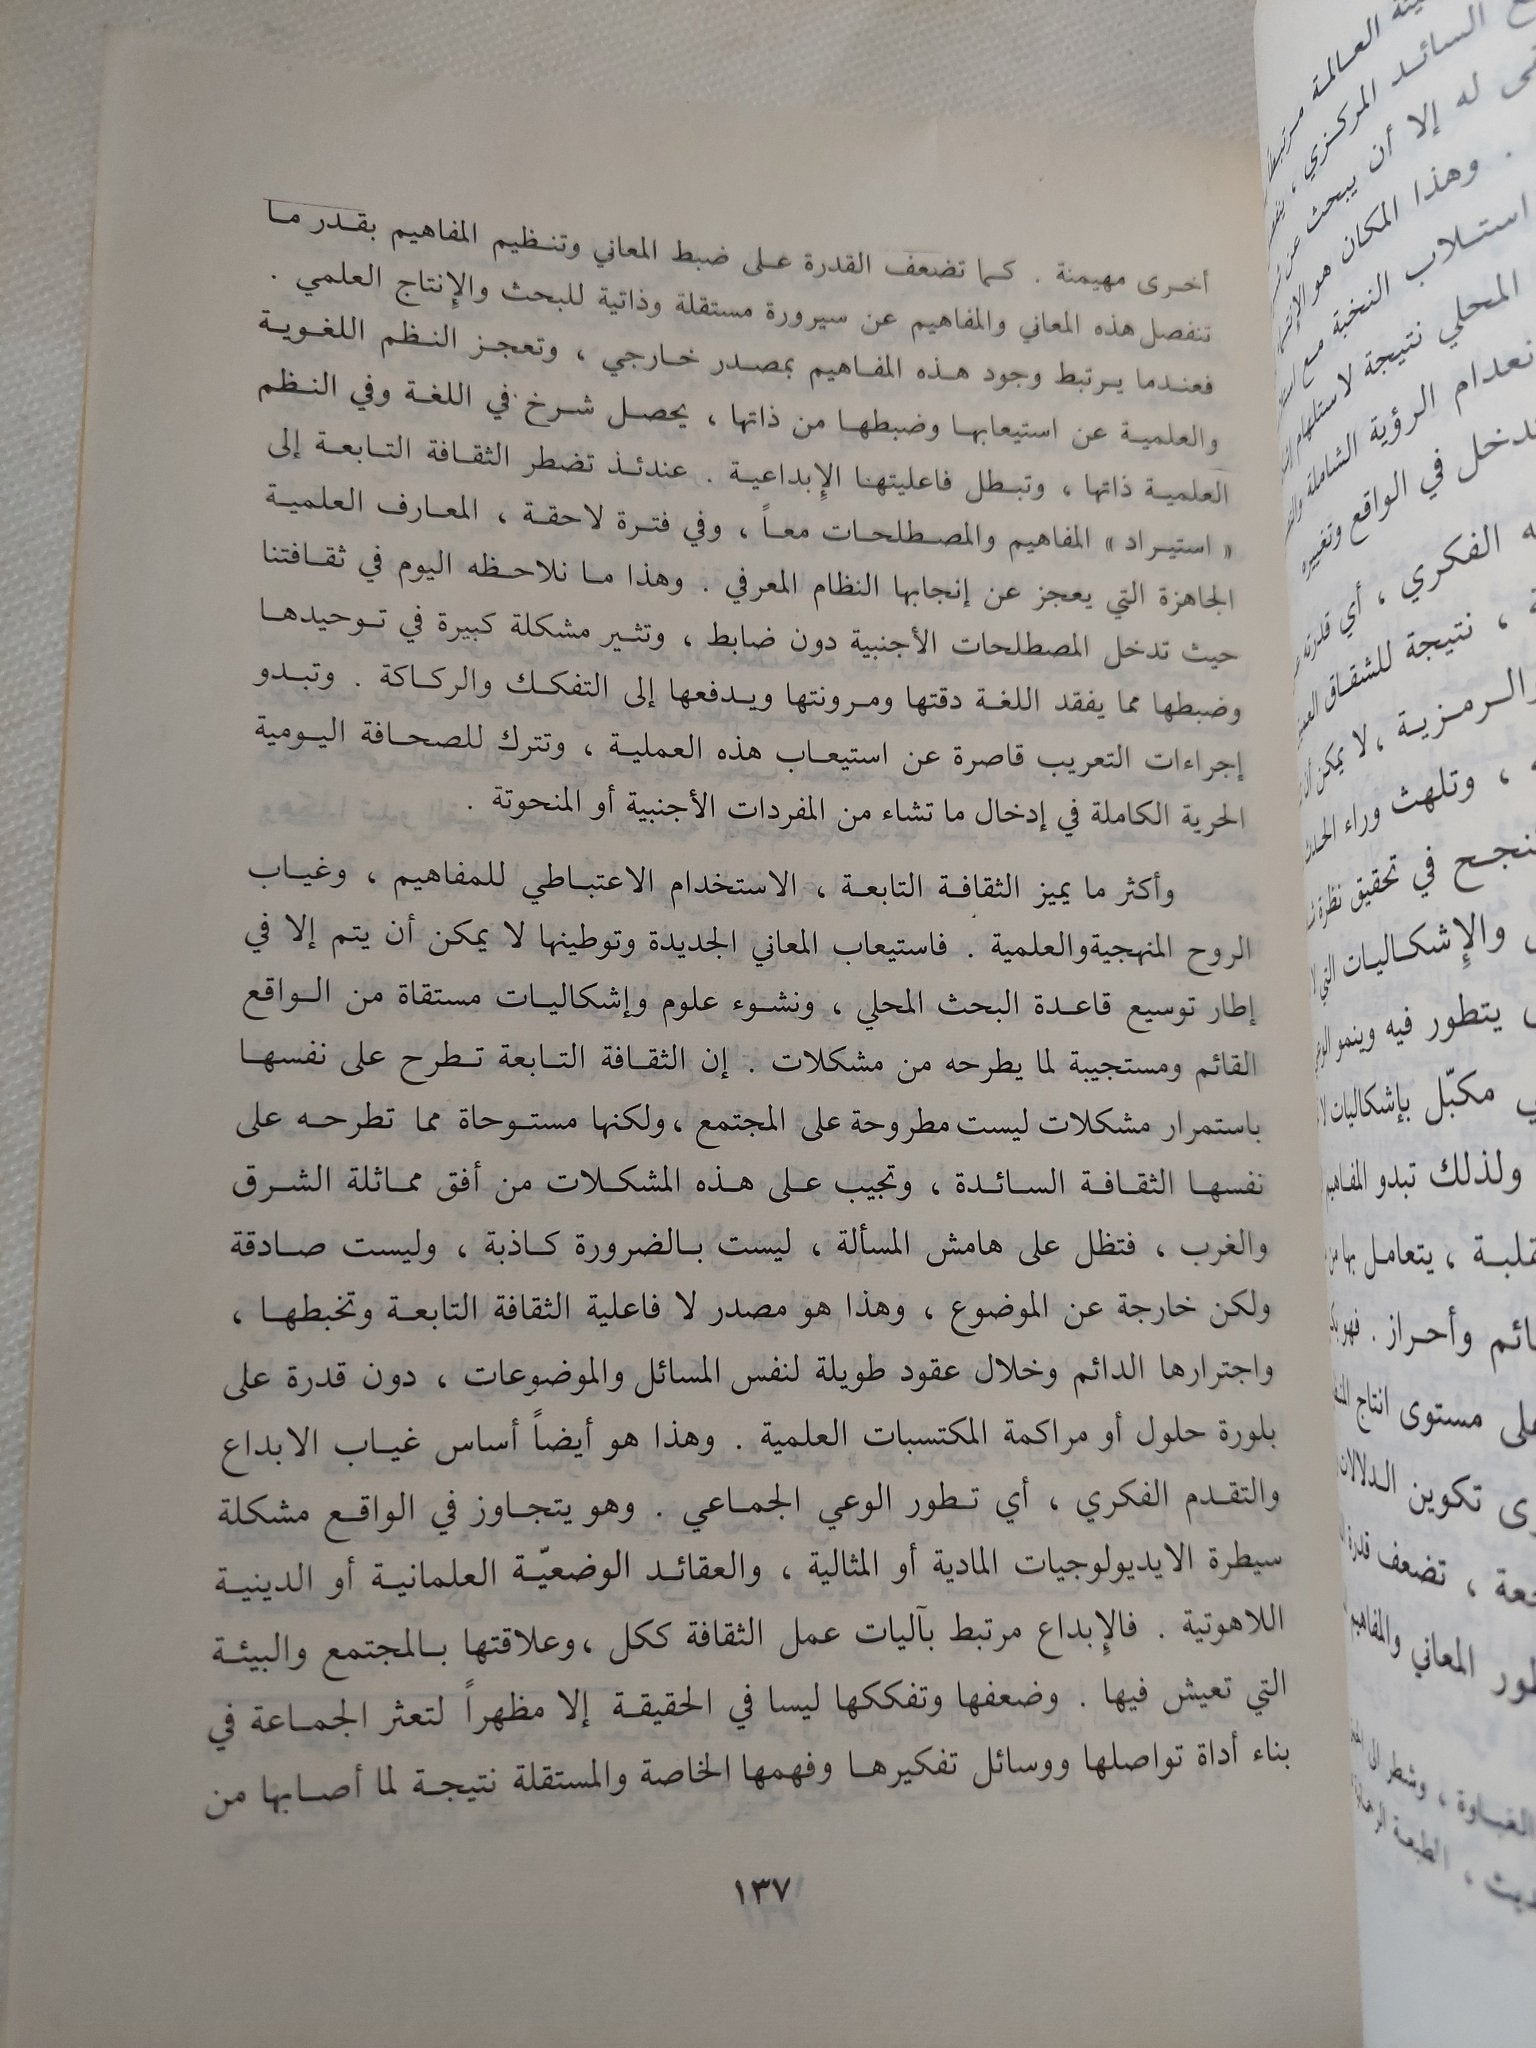 أخرى مهيمنة . كما تضعف القدرة على ضبط المعاني وتنظيم المفاهيم بقدر ما
تنفصل هذه المعاني والمفاهيم عن سيرورة مستقلة وذاتية للبحث والإنتاج العلمي .
فعندما يرتبط وجود هذه المفاهيم بمصدر خارجي ، وتعجز النظم اللغوية
والعلمية عن استيعابها وضبطها من ذاتها ، يحصل شرخ في اللغة وفي النظم
العلمية ذاتها ، وتبطل فاعليتهنا الإبداعية . عندئذ تضطر الثقافة التابعة إلى
« استيراد » المفاهيم والمصطلحات معاً ، وفي فترة لاحقة ، المعارف العلمية
الجاهزة التي يعجز عن إنجابها النظام المعرفي . وهذا ما نلاحظه اليوم في ثقافتنا
حيث تدخل المصطلحات الأجنبية دون ضابط ، وتثير مشكلة كبيرة في توحيدها
وضبطها مما يفقد اللغة دقتها ومرونتها ويدفعها إلى التفكك والركاكة . وتبدو
إجراءات التعريب قاصرة عن استيعاب هذه العملية ، وتترك للصحافة اليومية
الحرية الكاملة في إدخال ما تشاء من المفردات الأجنبية أو المنحوتة .
وأكثر ما يميز الثقافة التابعة ، الاستخدام الاعتباطي للمفاهيم ، وغياب
الروح المنهجيةوالعلمية . فاستيعاب المعاني الجديدة وتوطينها لا يمكن أن يتم إلا في
إطار توسيع قاعدة البحث المحلي ، ونشوء علوم وإشكاليات مستقاة من الواقع
القائم ومستجيبة لما يطرحه من مشكلات . إن الثقافة التابعة تطرح على نفسها
باستمرار مشكلات ليست مطروحة على المجتمع ، ولكنها مستوحاة مما تطرحه على
نفسها الثقافة السائدة ، وتجيب على هذه المشكلات من أفق مماثلة الشرق
والغرب ، فتظل على هامش المسألة ، ليست بالضرورة كاذبة ، وليست صادقة
ولكن خارجة عن الموضوع ، وهذا هو مصدر لا فاعلية الثقافة التابعة وتخبطها ،
واجترارها الدائم وخلال عقود طويلة لنفس المسائل والموضوعات ، دون قدرة على
بلورة حلول أو مراكمة المكتسبات العلمية . وهذا هو أيضاً أساس غياب الابداع
والتقدم الفكري ، أي تطور الوعي الجماعي . وهو يتجاوز في الواقع مشكلة
سيطرة الايديولوجيات المادية أو المثالية ، والعقائد الوضعيّة العلمانية أو الدينية
اللاهوتية . فالإبداع مرتبط بآليات عمل الثقافة ككل ، وعلاقتها بالمجتمع والبيئة
التي تعيش فيها . وضعفها وتفككها ليسا في الحقيقة إلا مظهراً لتعثر الجماعة في
بناء أداة تواصلها ووسائل تفكيرها وفهمها الخاصة والمستقلة نتيجة لما أصابها من
١٣٧
العالمة
السائد المركزي ،
له إلا أن يبحث عن
. وهذا المكان هو
استلاب النخبة مع
المحلي نتيجة لاستلهام
الرؤية الشاملة
في الواقع وتغييره
الفكري ، أي قدرته
، نتيجة للشقاق
والرمزية ، لا يمكن أن
، وتلهث وراء
في تحقيق نظرة
والإشكاليات التي لا
يتطور فيه وينمو
مكبّل بإشكاليات
ولذلك تبدو المفاهيم
، يتعامل بها من
وأحراز . فهو
مستوى انتاج
تكوين الدلالات
، تضعف قدرة
المعاني والمفاهيم
الغباوة ، وشطر الى
، الطبعة